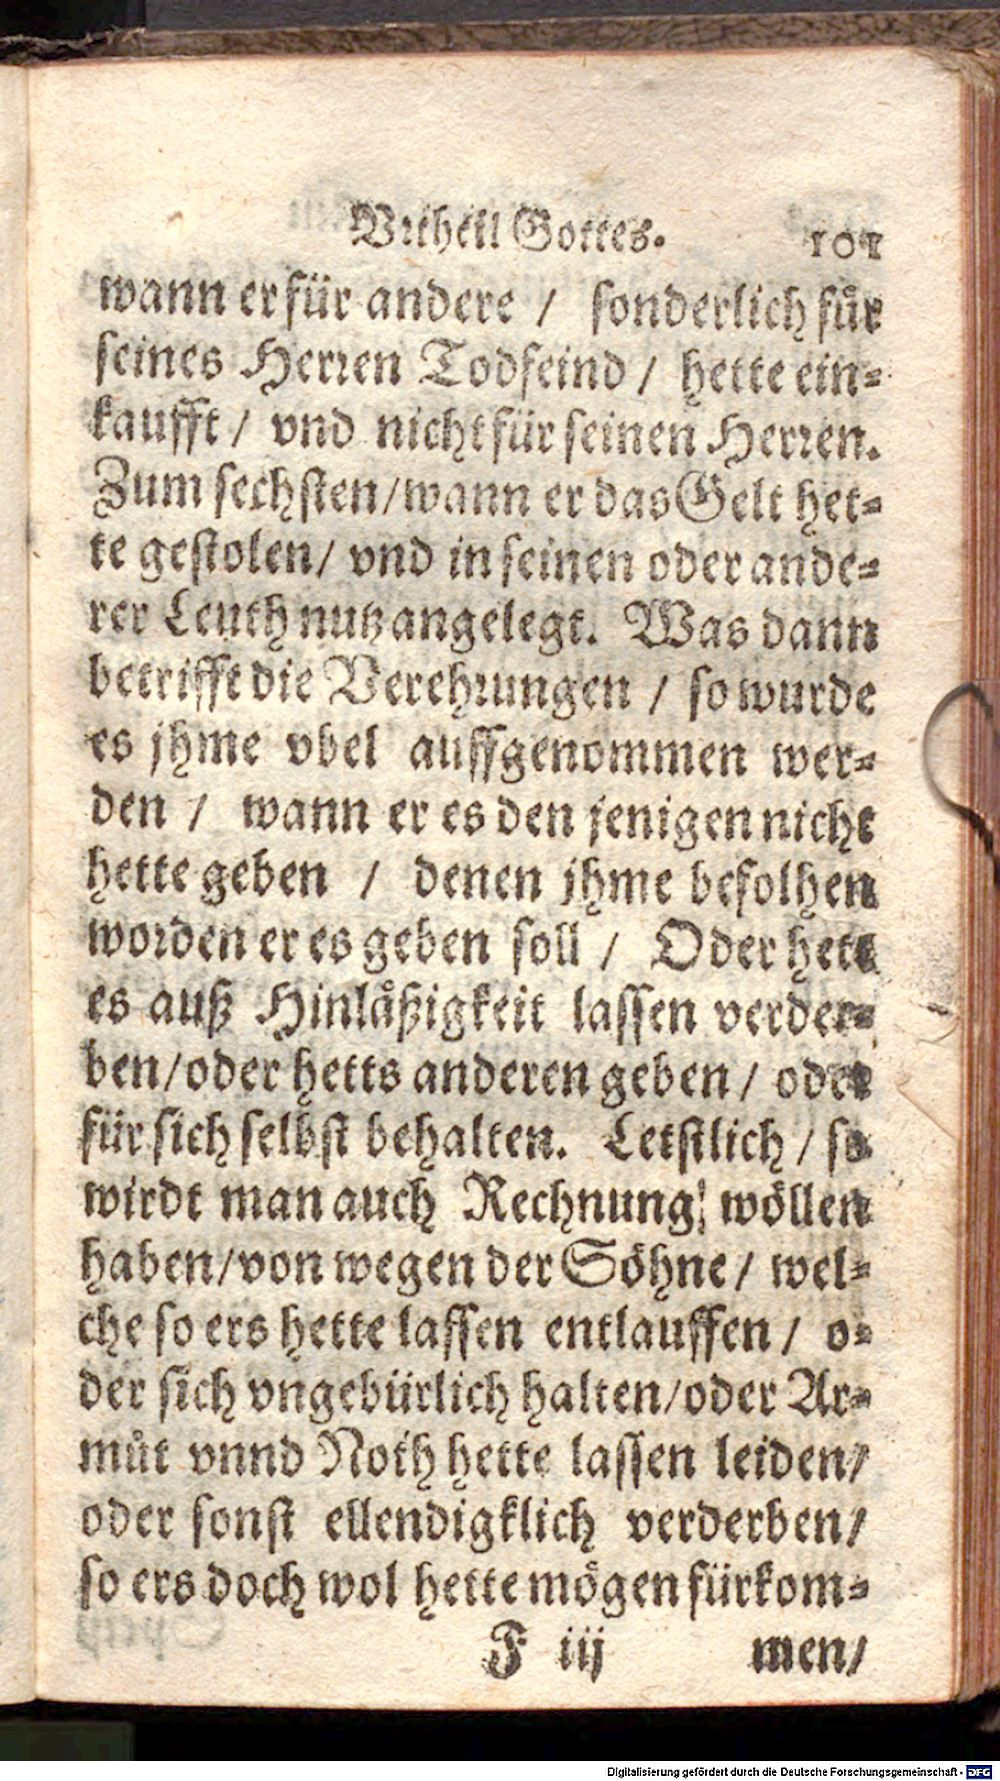 Vrtheil Gottes. 101
wann er für andere / sonderlich für
seines Herren Todfeind / hette ein-
kaufft / vnd nicht für seinen Herren.
Zum sechsten / wann er das Gelt het-
te gestolen / vnd in seinen oder ande-
rer Leuth nutz angelegt. Was dann
betrifft die Verehrungen / so wurde
es jhme vbel auffgenommen wer-
den / wann er es den jenigen nicht
hette geben / denen jhme befolhen
worden er es geben soll / Oder hett
es auß Hinlåßigkeit lassen verder-
ben / oder hetts anderen geben / oder
für sich selbst behalten. Letstlich / so
wirdt man auch Rechnung wöllen
haben / von wegen der Söhne / wel-
che so ers hette lassen entlauffen / o-
der sich vngebürlich halten / oder Ar-
můt vnnd Noth hette lassen leiden /
oder sonst ellendigklich verderben /
so ers doch wol hette mögen fürkom-
F iij men /
Digitalisierung gefördert durch die Deutsche Forschungsgemeinschaft - DFG